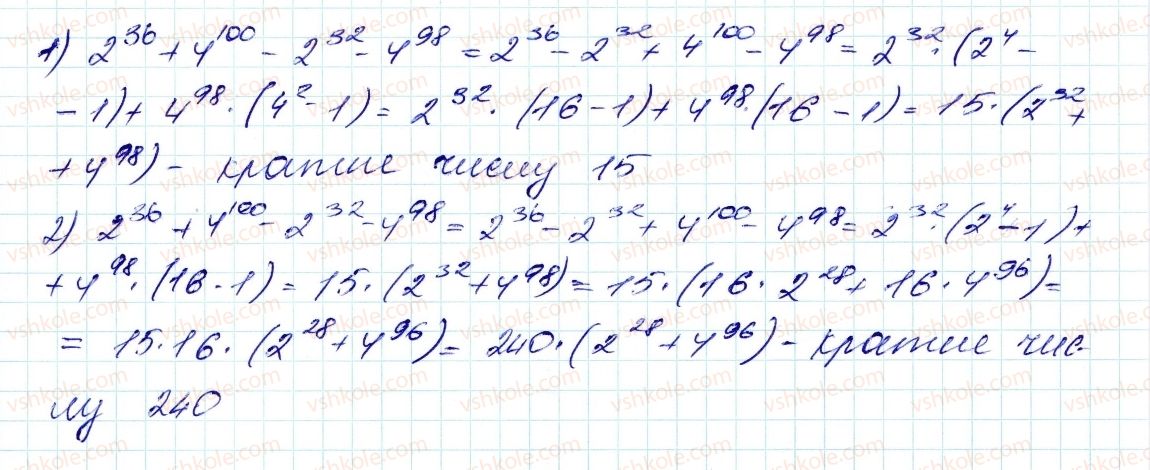 1) 2³⁶ + 4¹⁰⁰ - 2³² - 4⁹⁸ = 2³⁶ - 2³² + 4¹⁰⁰ - 4⁹⁸ = 2³² · (2⁴ -
- 1) + 4⁹⁸ · (4² - 1) = 2³² · (16 - 1) + 4⁹⁸ · (16 - 1) = 15 · (2³² +
+ 4⁹⁸) - кратне числу 15
2) 2³⁶ + 4¹⁰⁰ - 2³² - 4⁹⁸ = 2³⁶ - 2³² + 4¹⁰⁰ - 4⁹⁸ = 2³² · (2⁴ - 1) +
+ 4⁹⁸ · (16 - 1) = 15 · (2³² + 4⁹⁸) = 15 · (16 · 2²⁸ + 16 · 4⁹⁶) =
= 15 · 16 · (2²⁸ + 4⁹⁶) = 240 · (2²⁸ + 4⁹⁶) - кратне чис-
лу 240
vshkole.com